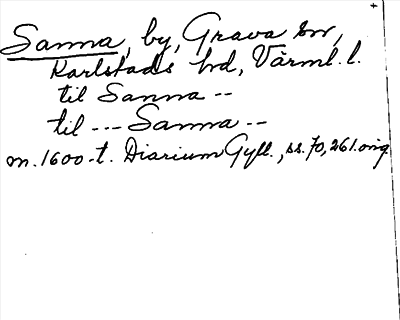 Sanna, by, Grava sn,
Karlstads hd, Värml. l.
til Sanna --
til --- Sanna --
m. 1600-t. Diarium Gyll., ss. 70, 261. orig.